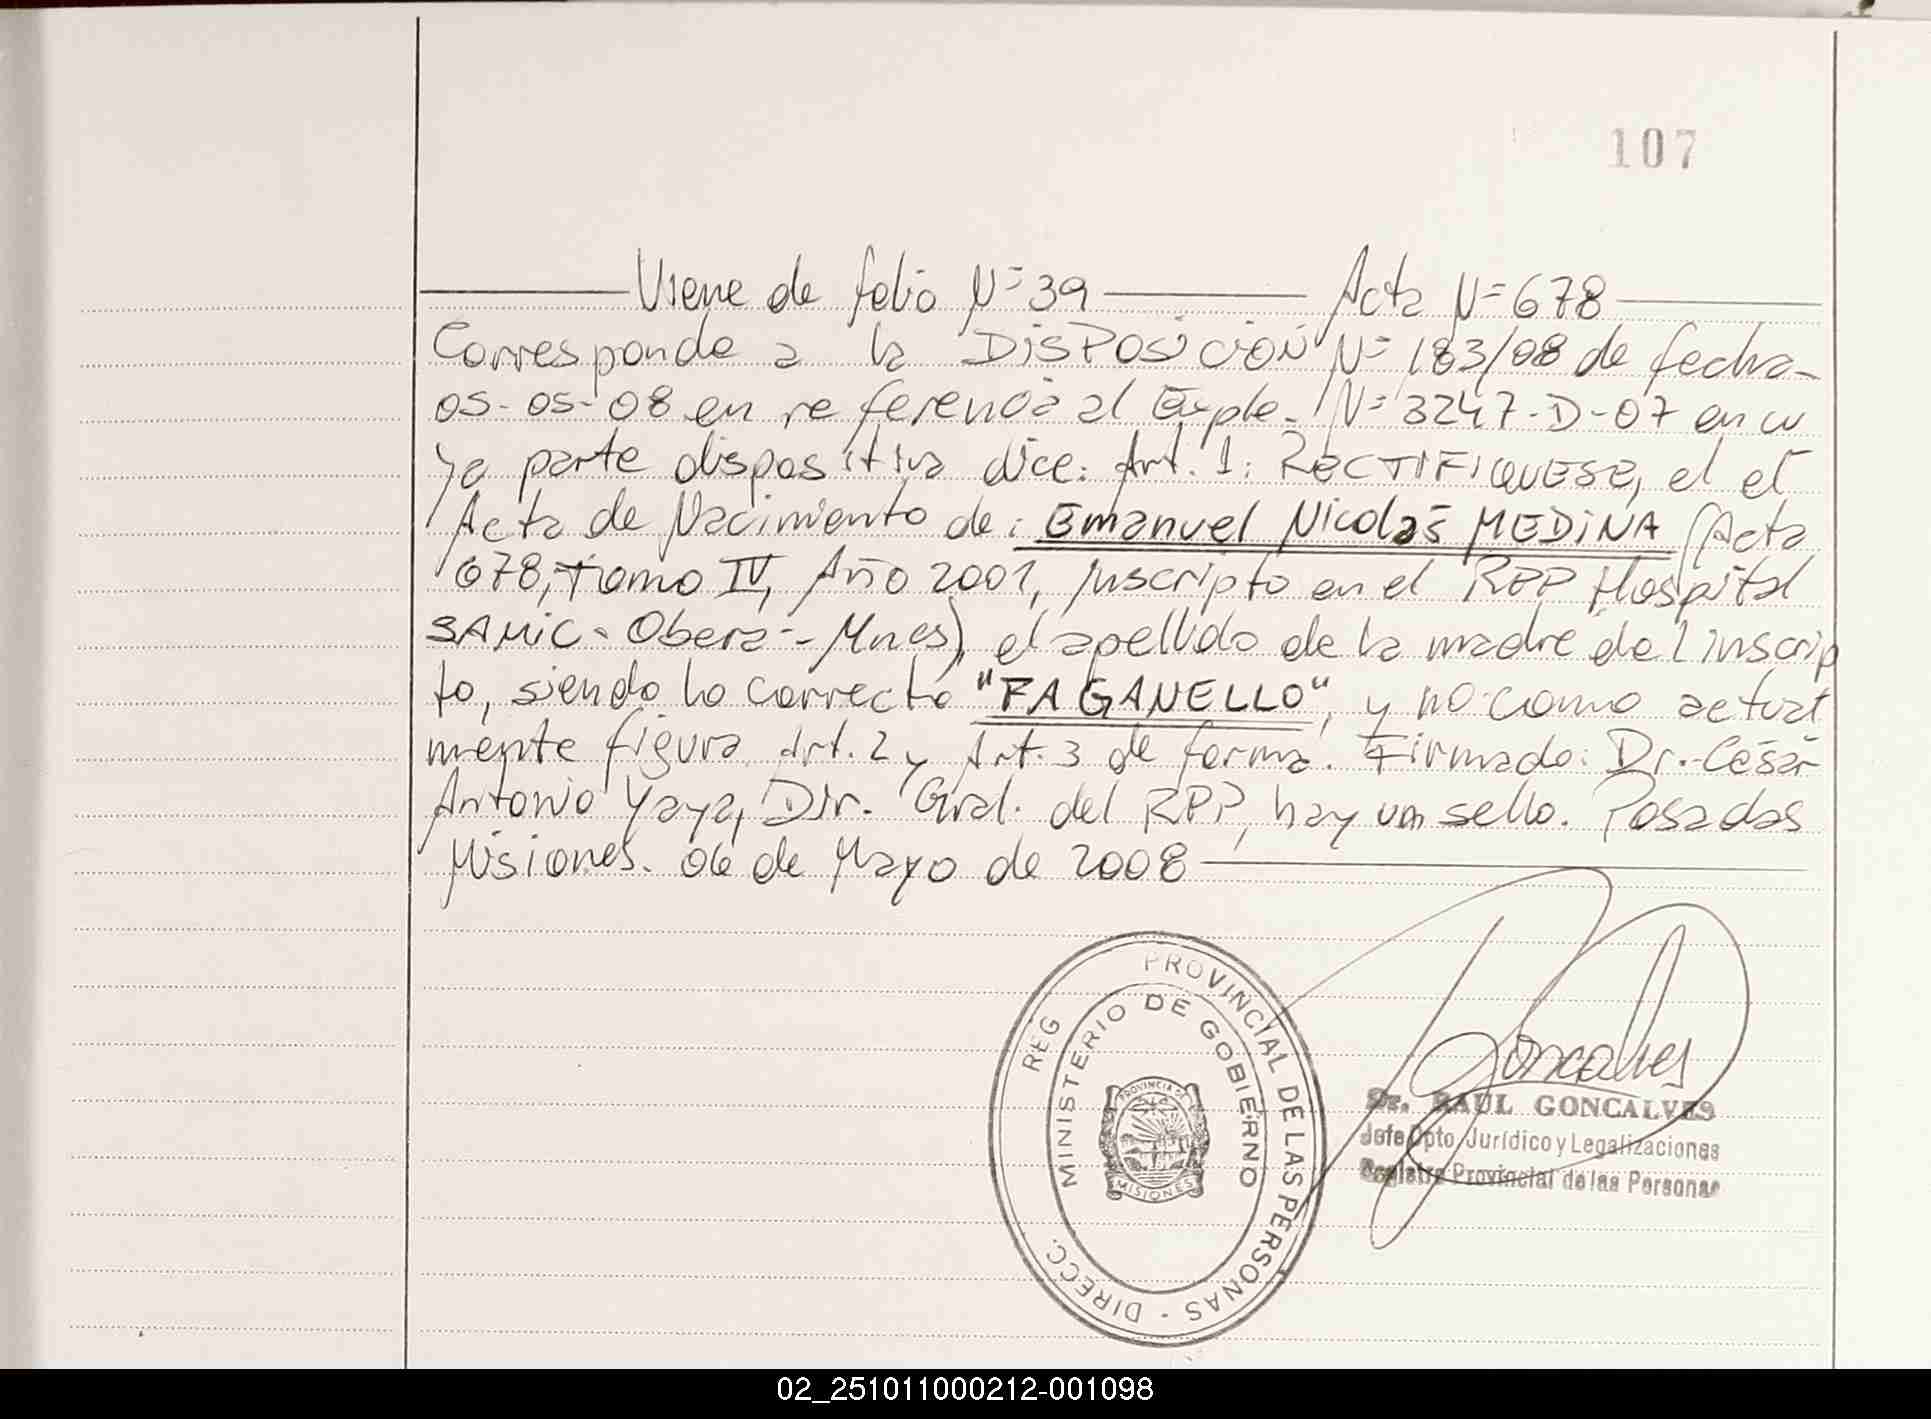 107
Viene de folio Nº 39 Acta Nº 678
Corresponde a la DISPOSICIÓN Nº 183/08 de fecha-
05-05-08 en referencia al Expte. Nº 3247-D-07 en cu
ya parte dispositiva dice: Art. 1: RECTIFIQUESE, el el
Acta de Nacimiento de: Emanuel Nicolás MEDINA (Acta
678, tomo IV, Año 2001, Inscripto en el RPP Hospital
SAMIC- Oberá-- Mnes), el apellido de la madre del inscrip
to, siendo lo correcto "FAGANELLO", y no como actual
mente figura. Art. 2 y Art. 3 de forma. Firmado: Dr. César
Antonio Yaya, Dir. Gral. del RPP, hay un sello. Posadas
Misiones. 06 de Mayo de 2008
DIRECC. REG PROVINCIAL DE LAS PERSONAS -
MINISTERIO DE GOBIERNO
PROVINCIA DE
MISIONES
Goncalves
Dr. RAUL GONCALVES
Jefe Dpto. Jurídico y Legalizaciones
Registro Provincial de las Personas
02_251011000212-001098